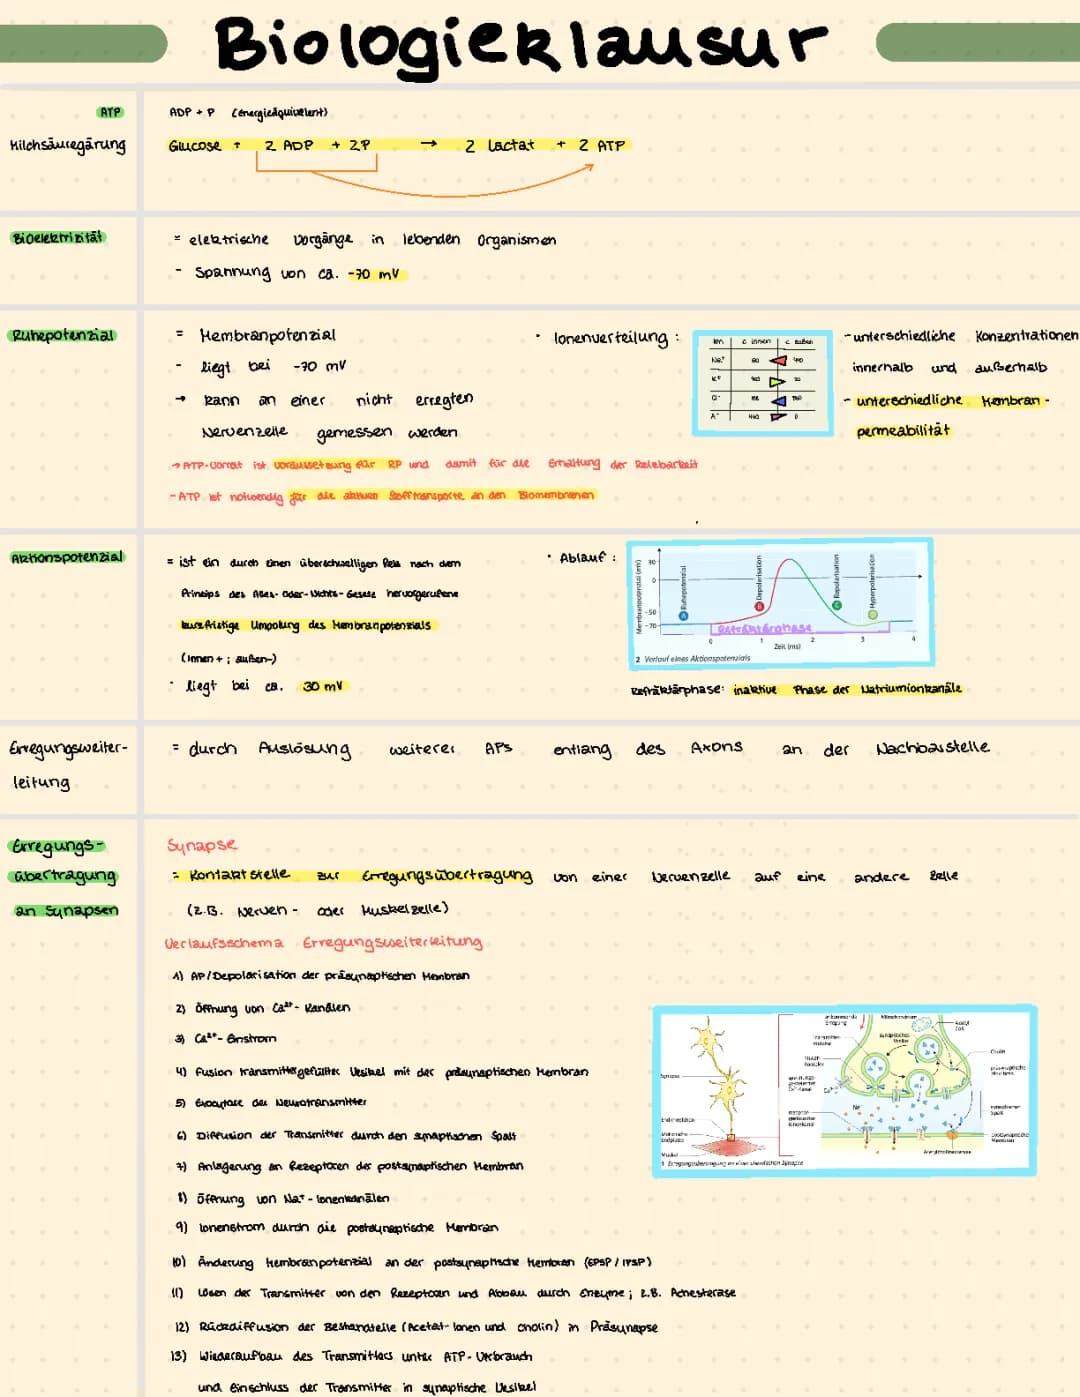 Biologieklausur
ATP
ADP + P (Energieäquivalent)
Milchsäuregärung
Glucose + 2 ADP + 2P → 2 Lactat + 2 ATP
Bioelektrizität
= elektrische Vorgänge in lebenden Organismen
- Spannung von ca. -70 mV
Ruhepotenzial
= Membranpotenzial
- liegt bei -70 mV
→ kann an einer nicht erregten
Nervenzelle gemessen werden
→ ATP-Vorrat ist Voraussetzung für RP und damit für die Erhaltung der Reizbarkeit
- ATP ist notwendig für die aktiven Stofftransporte an den Biomembranen
• Ionenverteilung :
Ion c innen c außen
Na⁺
K⁺
Cl⁻
A⁻
- unterschiedliche Konzentrationen
innerhalb und außerhalb
- unterschiedliche Membran-
permeabilität
Aktionspotenzial
= ist ein durch einen überschwelligen Reiz nach dem
Prinzips des Alles-Oder-Nichts-Gesetz hervorgerufene
kurzfristige Umpolung des Membranpotenzials
(Innen + ; außen-)
• liegt bei ca. 30 mV
• Ablauf :
Membranpotenzial (mV)
30
0
-50
-70
A Ruhepotenzial
B Depolarisation
C Repolarisation
D Hyperpolarisation
Refräktärphase
0 1 2 3 4
Zeit (ms)
2 Verlauf eines Aktionspotenzials
Refräktärphase: inaktive Phase der Natriumionkanäle
Erregungsweiter-
leitung
= durch Auslösung weiterer APs entlang des Axons an der Nachbarstelle
Erregungs-
übertragung
an Synapsen
Synapse
= Kontaktstelle zur Erregungsübertragung von einer Nervenzelle auf eine andere Zelle
(z.B. Nerven- oder Muskelzelle)
Verlaufsschema Erregungsweiterleitung
1) AP/Depolarisation der präsynaptischen Membran
2) Öffnung von Ca²⁺- Kanälen
3) Ca²⁺- Einstrom
4) Fusion transmittergefüllter Vesikel mit der präsynaptischen Membran
5) Exocytose der Neurotransmitter
6) Diffusion der Transmitter durch den synaptischen Spalt
7) Anlagerung an Rezeptoren der postsynaptischen Membran
8) Öffnung von Na⁺- Ionenkanälen
9) Ionenstrom durch die postsynaptische Membran
10) Änderung Membranpotenzial an der postsynaptische Membran (EPSP / IPSP)
11) Lösen der Transmitter von den Rezeptoren und Abbau durch Enzyme; z.B. Achesterase
12) Rückdiffusion der Bestandteile (Acetat-Ionen und Cholin) in Präsynapse
13) Wiederaufbau des Transmitters unter ATP-Verbrauch
und Einschluss der Transmitter in synaptische Vesikel
ankommende
Erregung
Mitochondrium
Acetyl
CoA
synaptisches
Vesikel
Cholin
Ca²⁺
Na⁺
Synapse
Muskel
Acetylcholinesterase
1 Erregungsübertragung an einer chemischen Synapse